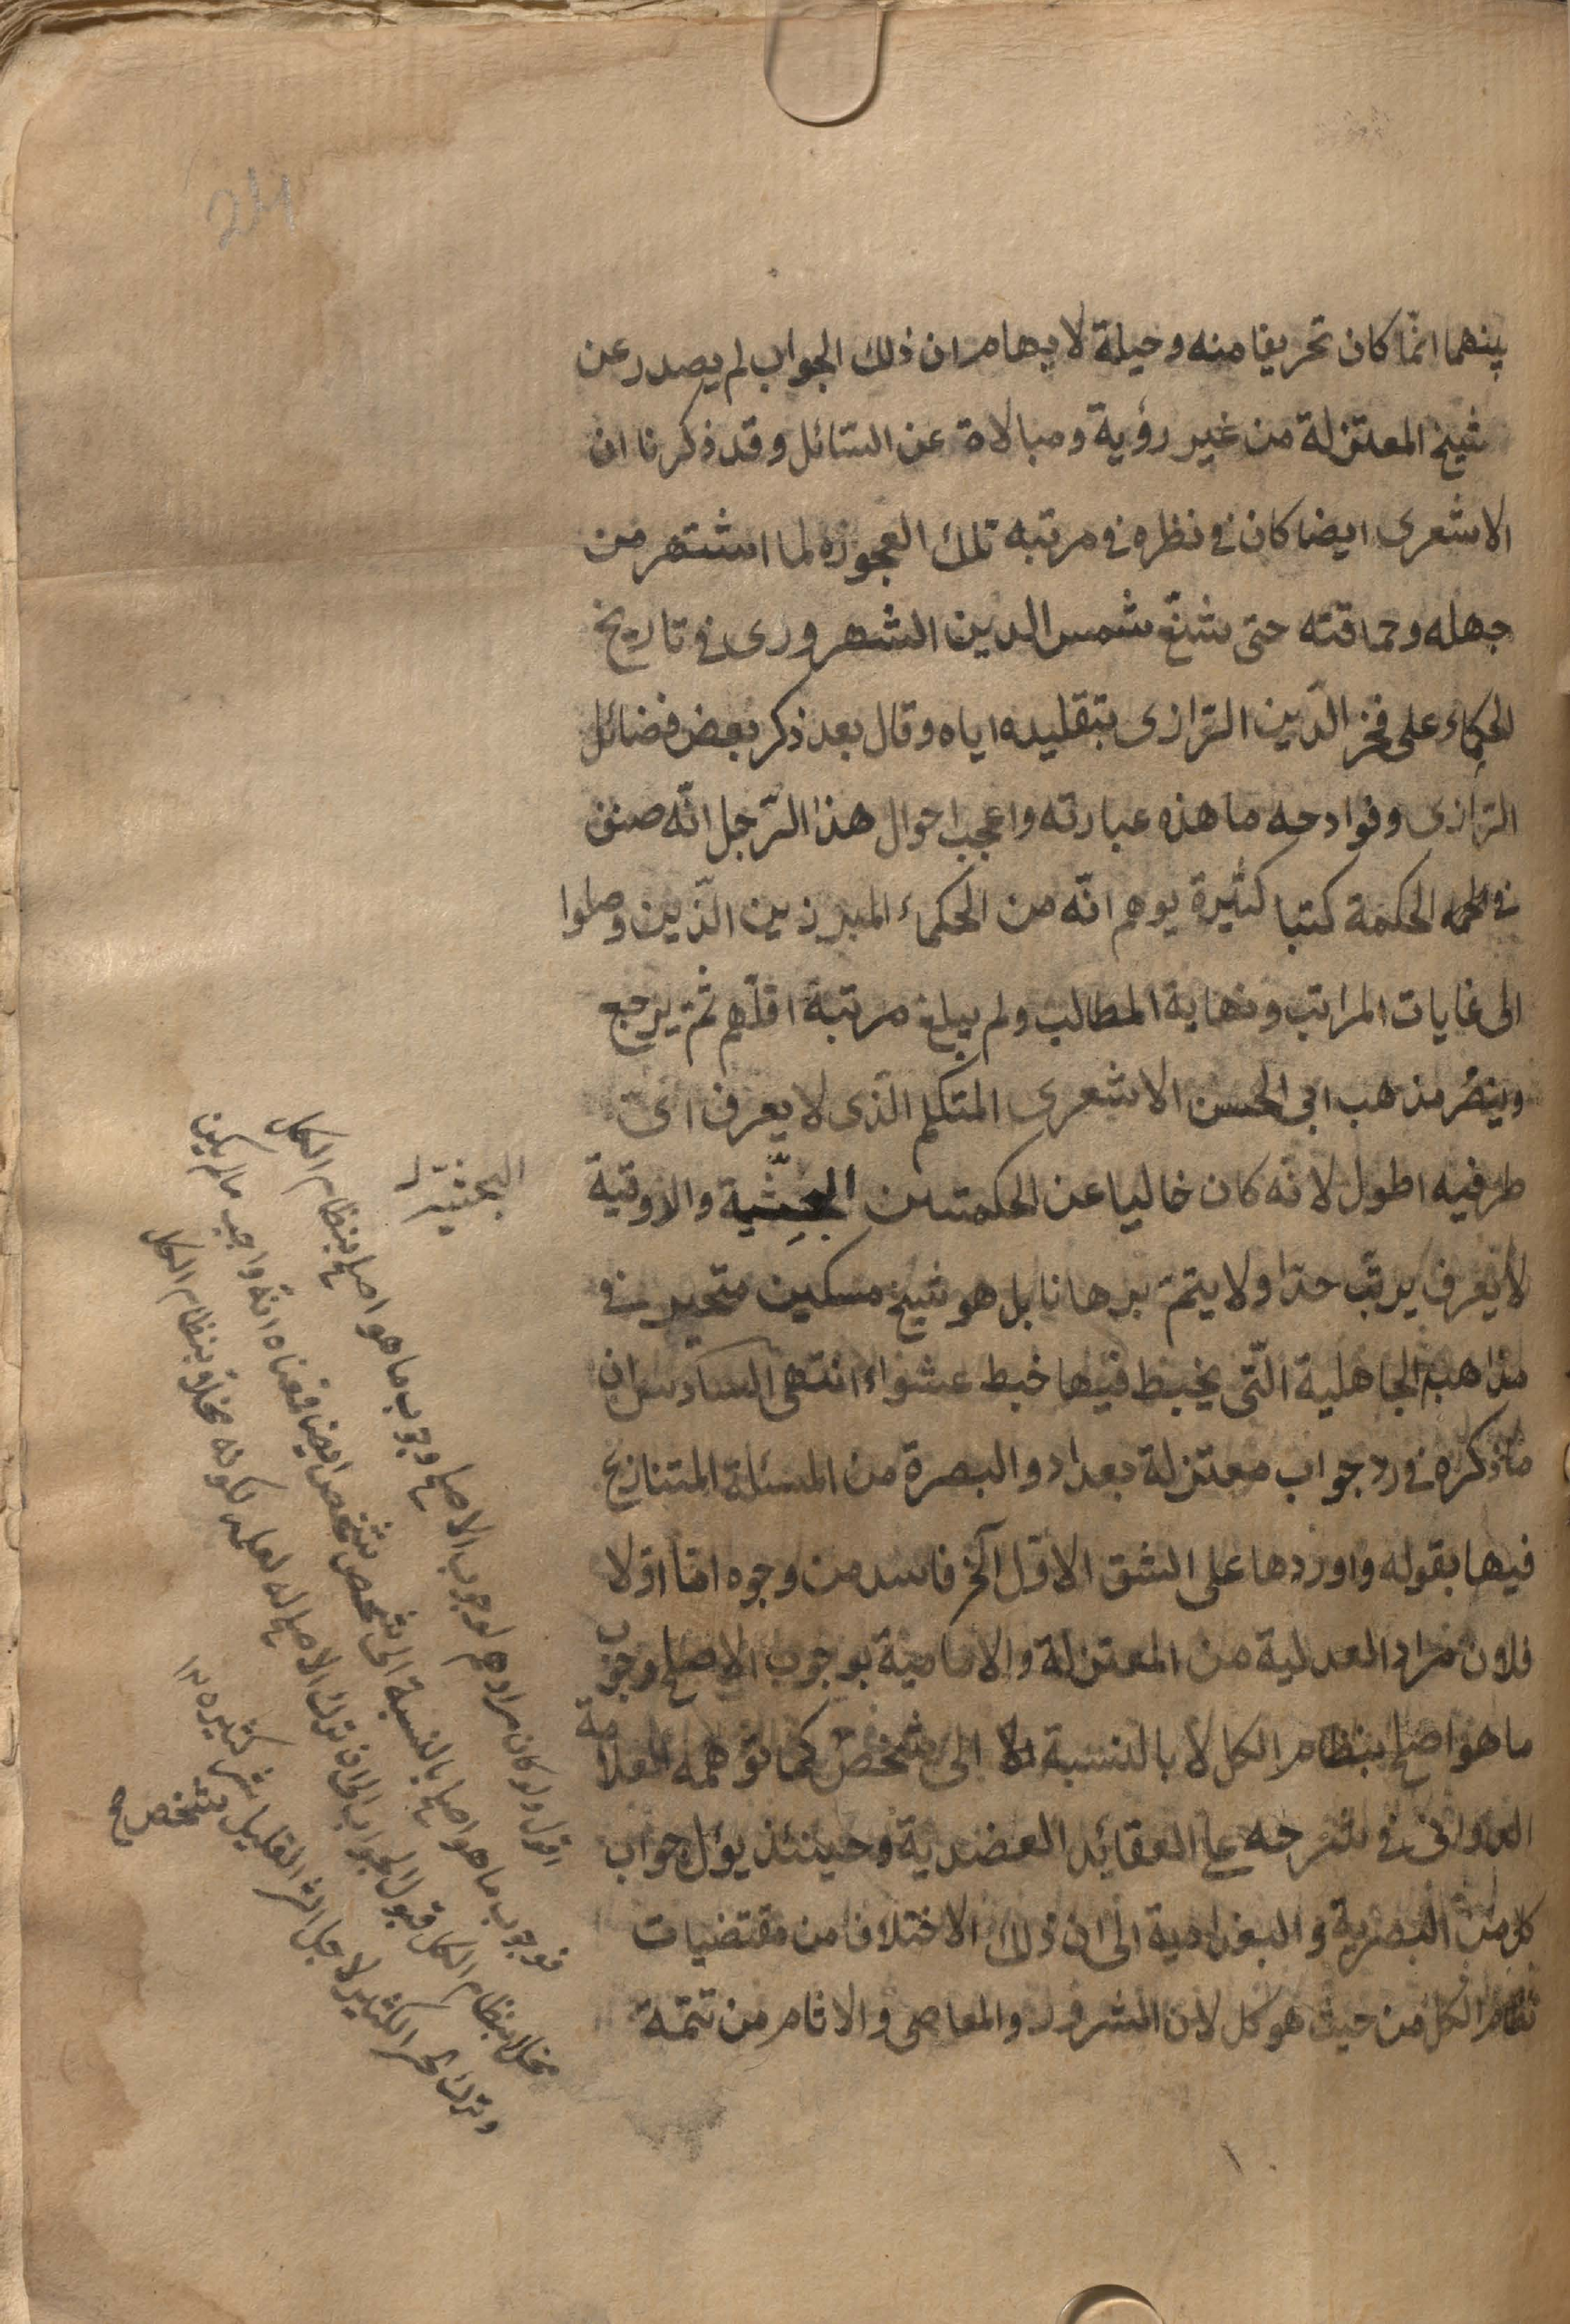 بينهما انّما كان تحريفا منه وحيلة لايهام ان ذلك الجواب لم يصدر عن
شيخ المعتزلة من غير رؤية ومبالاة عن السّائل وقد ذكرنا ان
الاشعرى ايضا كان فى نظره فى مرتبه تلك العجوزه لما اشتهر من
جهله وحماقته حتى شنّع شمس الدين الشهرورى فى تاريخ
الحكماء على فخر الدّين الرّازى بتقليده اياه وقال بعد ذكر بعض فضائل
الرّازى وقوادحه ما هذه عبارته واعجب احوال هذا الرّجل انّه صنف
فى الحكمة كتبا كثيرة يوهم انّه من الحكماء المبرزين الذّين وصلوا
الى غايات المراتب ونهاية المطالب ولم يبلغ مرتبة اقلّهم ثمّ يرجع
وينصُر مذهب ابى الحسن الاشعرى المتكلم الذّى لا يعرف اىّ
طرفيه اطول لانّه كان خاليا عن الحكمتين البحثّية والذوقية
لا يعرف يرتّب حدّا ولا يتمّ برهانا بل هو شيخ مسكين متحير فى
مذاهب الجاهلية التّى يخبط فيها خبط عشواء انتهى السادس ان
ما ذكره فى رد جواب معتزلة بغداد والبصرة من المسئلة المتنازع
فيها بقوله واوردها على الشق الاوّل آلخ فاسد من وجوه امّا اوّلا
فلان مراد العدلية من المعتزلة والامامية بوجوب الاصلح وجوب
ما هو اصلح بنظام الكل لا بالنسبة الى شخص كما توهمه العلامة
الدوانى فى شرحه على العقائد العضدية وحينئذ يؤل جواب
كل من البصرية والبغدادية الى ان ذلك الاختلاف من مقتضيات
نظام الكل من حيث هو كل لان الشرور والمعاصى والاثام من تتمّة
البحثيّة
اقول ولو كان مرادهم لوجوب الاصلح وجوب ما هو اصلح بنظام الكل
فوجوب ما هو اصلح بالنسبة الى شخص شخص ايضا فمعناه انّه واجب ما لم يكن
مخلا بنظام الكل فيؤل الجواب الى ان ترك الاصلح له لعلمه لكونه مخلا بنظام الكل
وترك الخير الكثير لاجل الشر القليل شر كثير ١٢